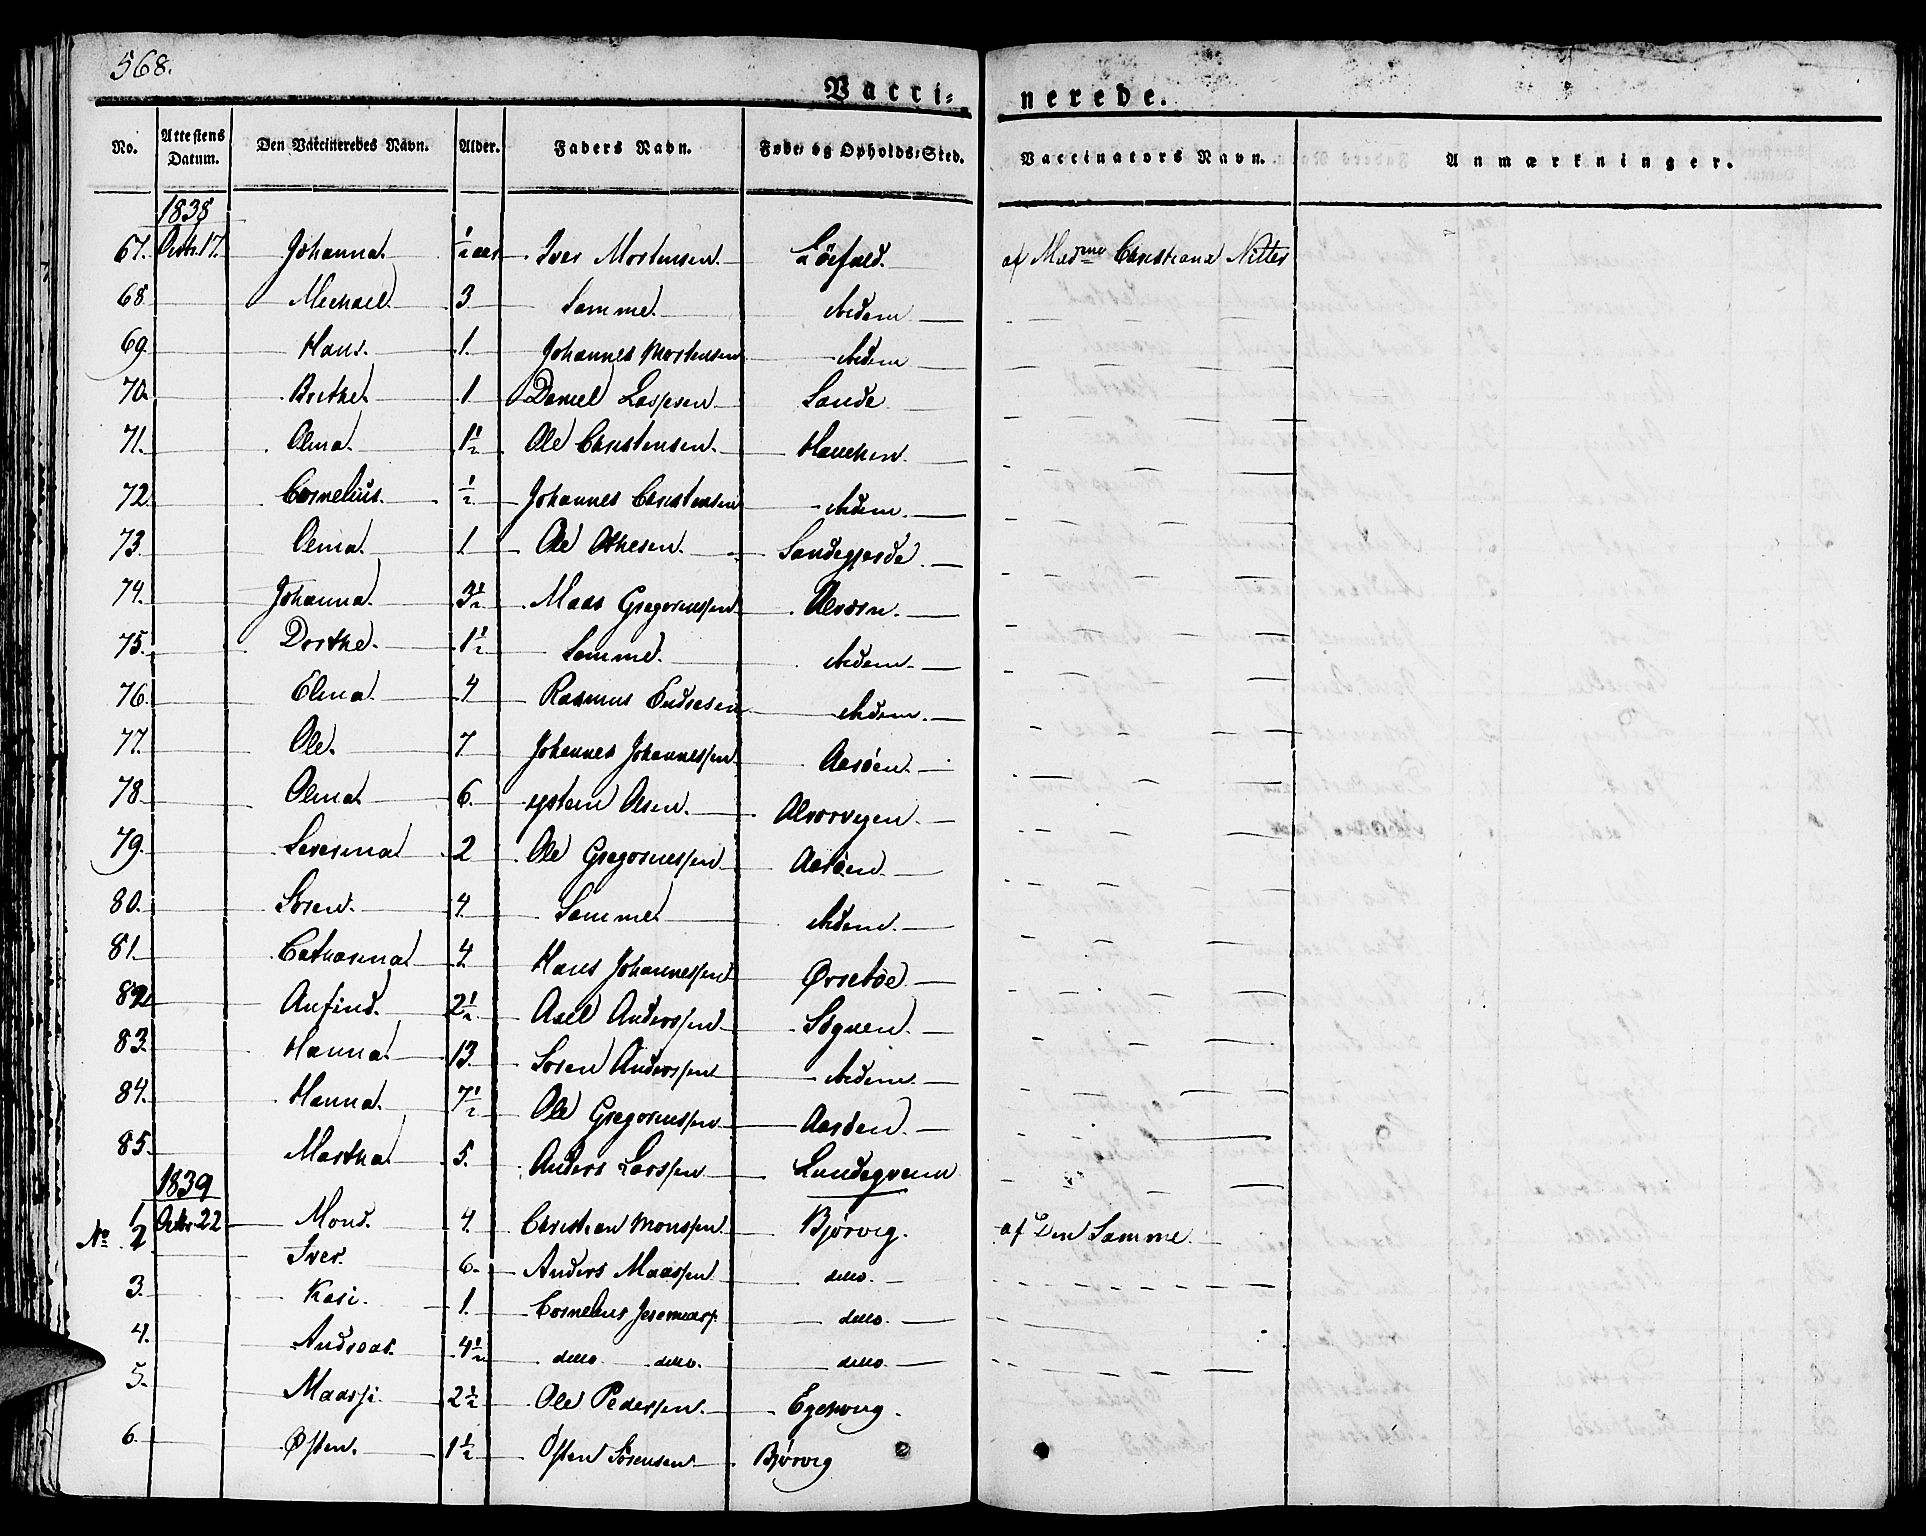 568.
Vacci= nerede.
No. Attestens Datum. Den Vaccineredes Navn. Alder. Faders Navn. Føde- og Opholds-Sted. Vaccinators Navn. Anmærkninger.
1838
67. Octbr. 17. Johanna. ½ aar Iver Mortensen. af Mad.me Christiana Nitter
68 Michael 3 Samme. ibidem
69 Hans. 1. Johannes Mortensen ibidem
70. Birthe 1 Daniel Lassesen Sande
71. Olina. 1½ Ole Christensen. Haucken.
72 Cornelius. ½ Johannes Christensen ibidem.
73. Olina. 1 Ole Othesen. Sandegjerde.
74. Johanna. 3½ Maas Gregoriussen Alvøren.
75. Dorthe. 1½ Samme. ibidem.
76. Elina. 4 Rasmus Endresen ibidem.
77. Ole. 7 Johannes Johannessen Aarøen.
78. Olina 6. Eystein Olsen. Alvorvigen.
79. Severina 2 Ole Gregoriussen Aarøen.
80. Søren. 4. Samme ibidem.
81. Catharina 4. Hans Johannessen Ørsebøe.
82 Anfind. 2½ Axel Anderssen Søgnen.
83. Hanna. 13. Søren Anderssen ibidem.
84. Hanna. 7½ Ole Gregoriussen Aarøen.
85. Martha 5. Anders Larssen
1839
No 1. Octbr 22 Mons. 4. Christian Monssen Bjørvig. af Den Samme.
2 Iver. 6. Anders Maassen ditto.
3. Kari. 1. Cornelius Jeremiass. ditto.
4. Andreas. 4½ ditto ditto. ditto.
5. Maassi. 2½ Ole Pederssen.
6. Østen. 1½ Østen Sørensen Bjørvig